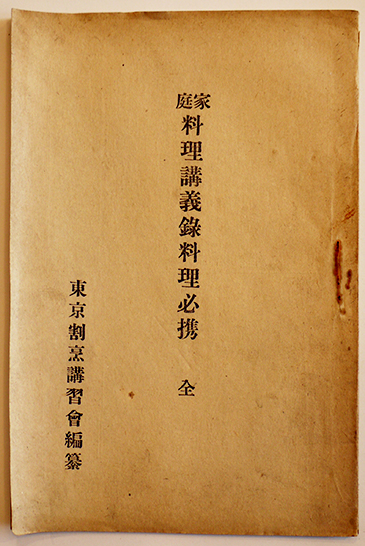 家庭料理講義錄料理必携 全
東京割烹講習會編纂